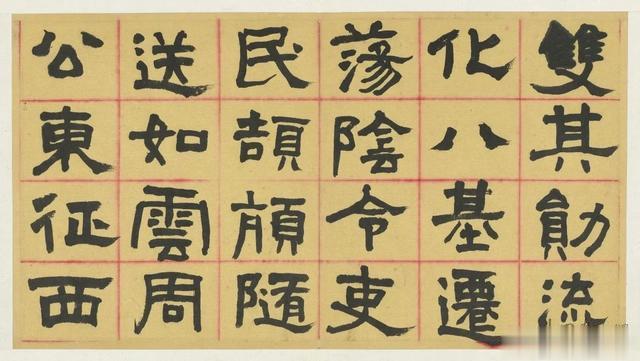 雙其勛流
化八基遷
蕩陰令吏
民頡頏隨
送如雲周
公東征西